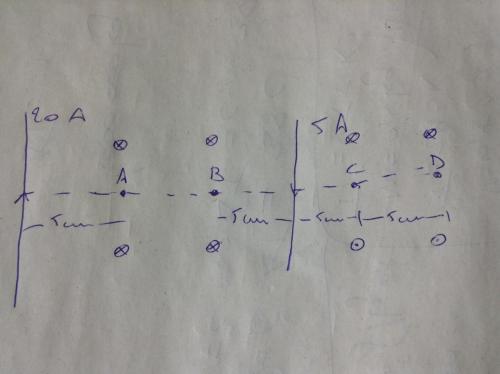 20 A
5 A
A
B
C
D
5cm
5cm
5cm
5cm